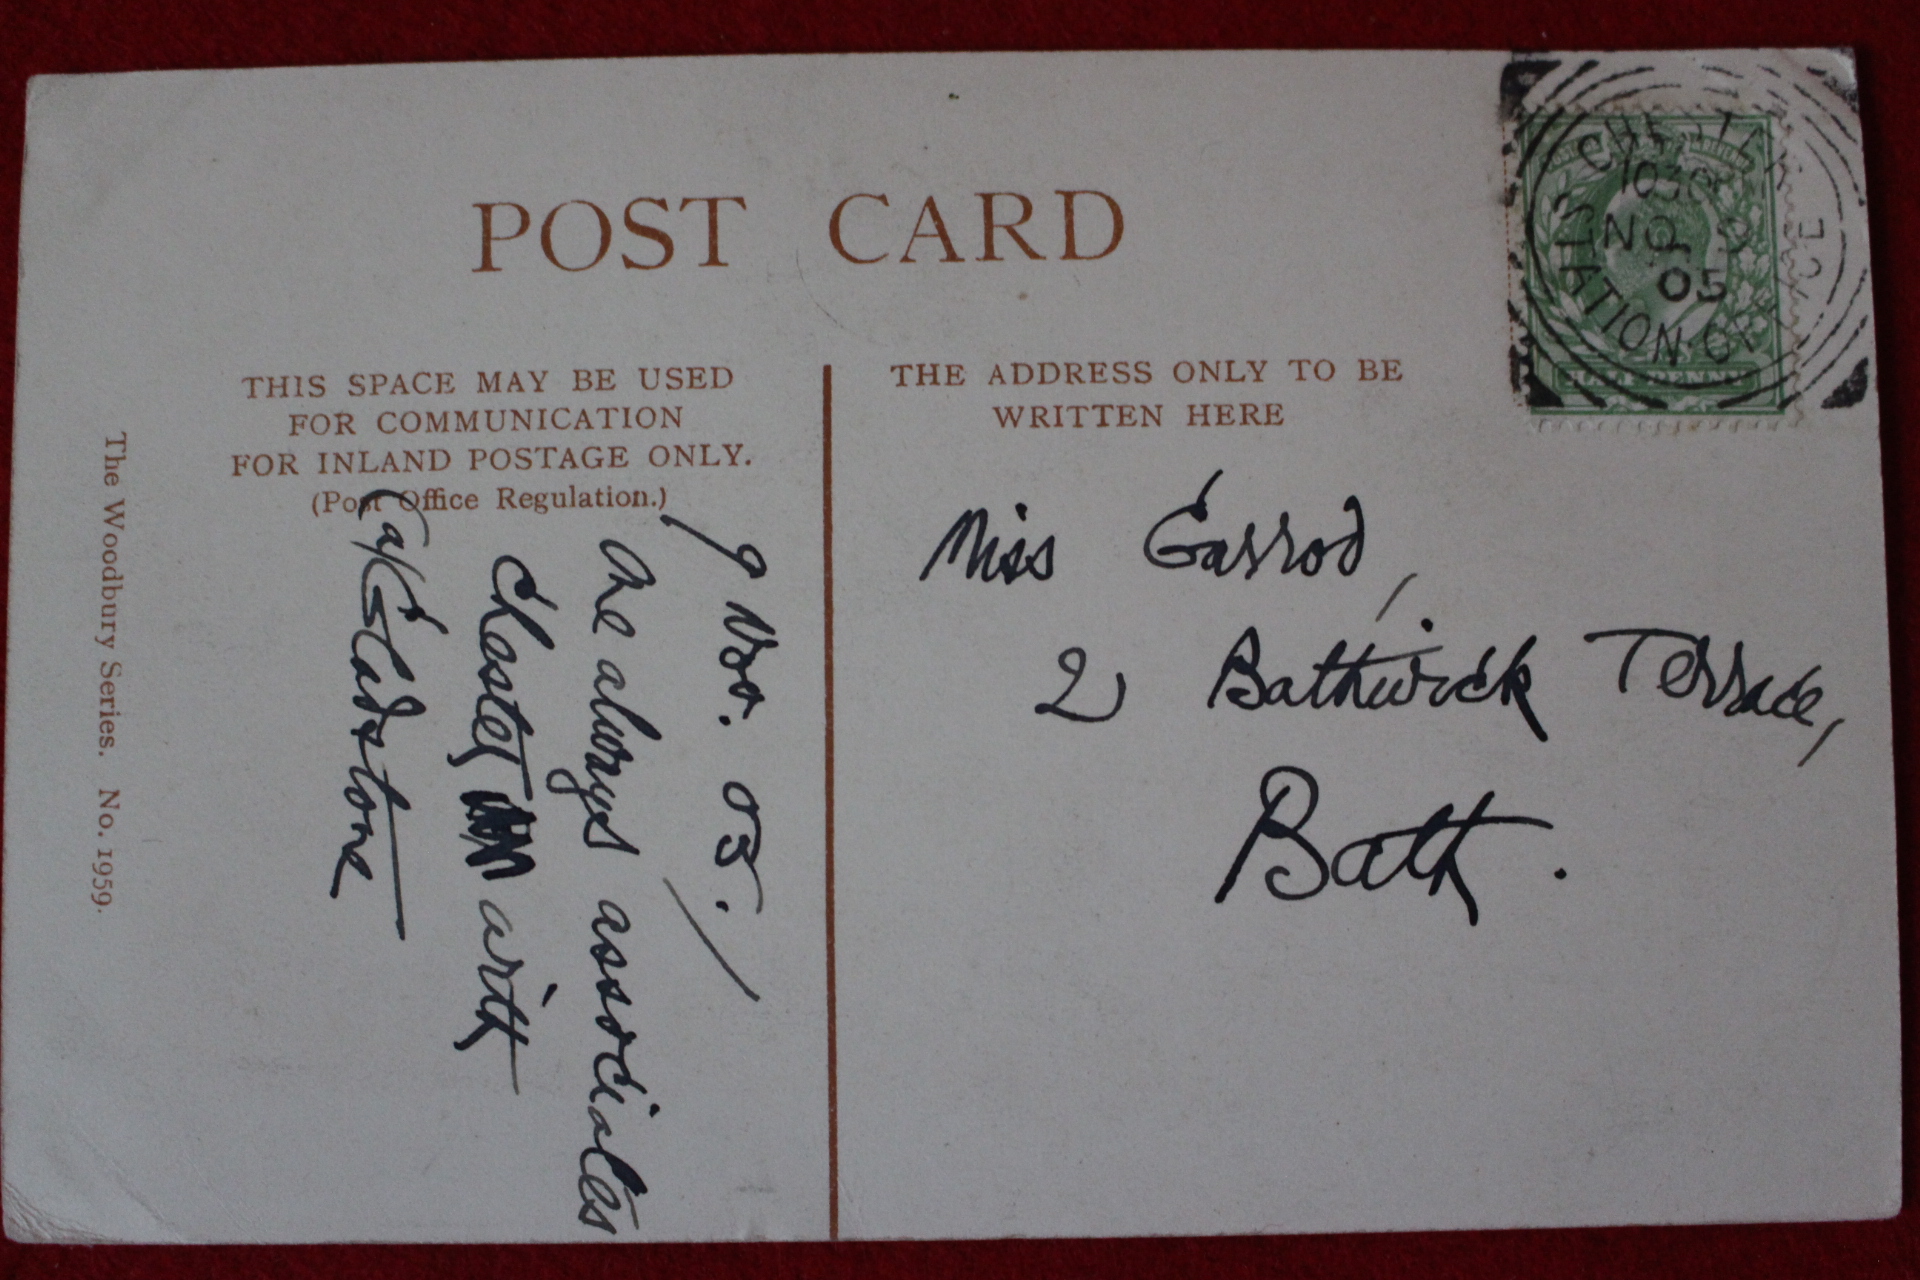 POST CARD
THIS SPACE MAY BE USED
FOR COMMUNICATION
FOR INLAND POSTAGE ONLY.
(Post Office Regulation.)
THE ADDRESS ONLY TO BE
WRITTEN HERE
The Woodbury Series. No. 1959.
9 Nov. 05.
One always associates
Chester with
Gladstone
Miss Garrod,
2 Bathwick Terrace,
Bath.
CHESTER STATION OFFICE
1030
NO 9
05
HALF PENNY